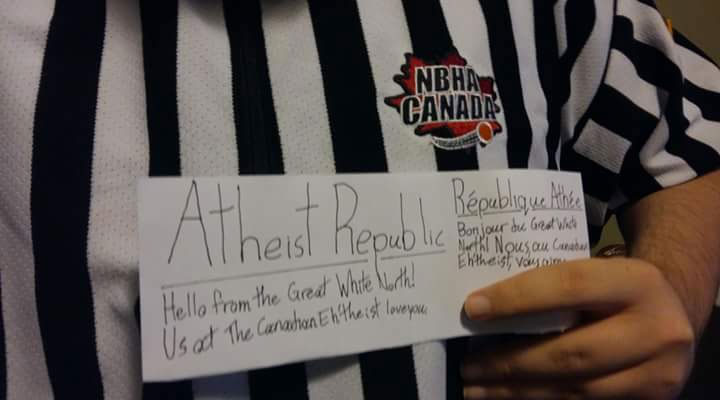 NBHA
CANADA
Atheist Republic
Hello from the Great White North!
Us at The Canadian Eh'theist love you.
République Athée
Bonjour du Great White
North! Nous au Canadian
Eh'theist, vous